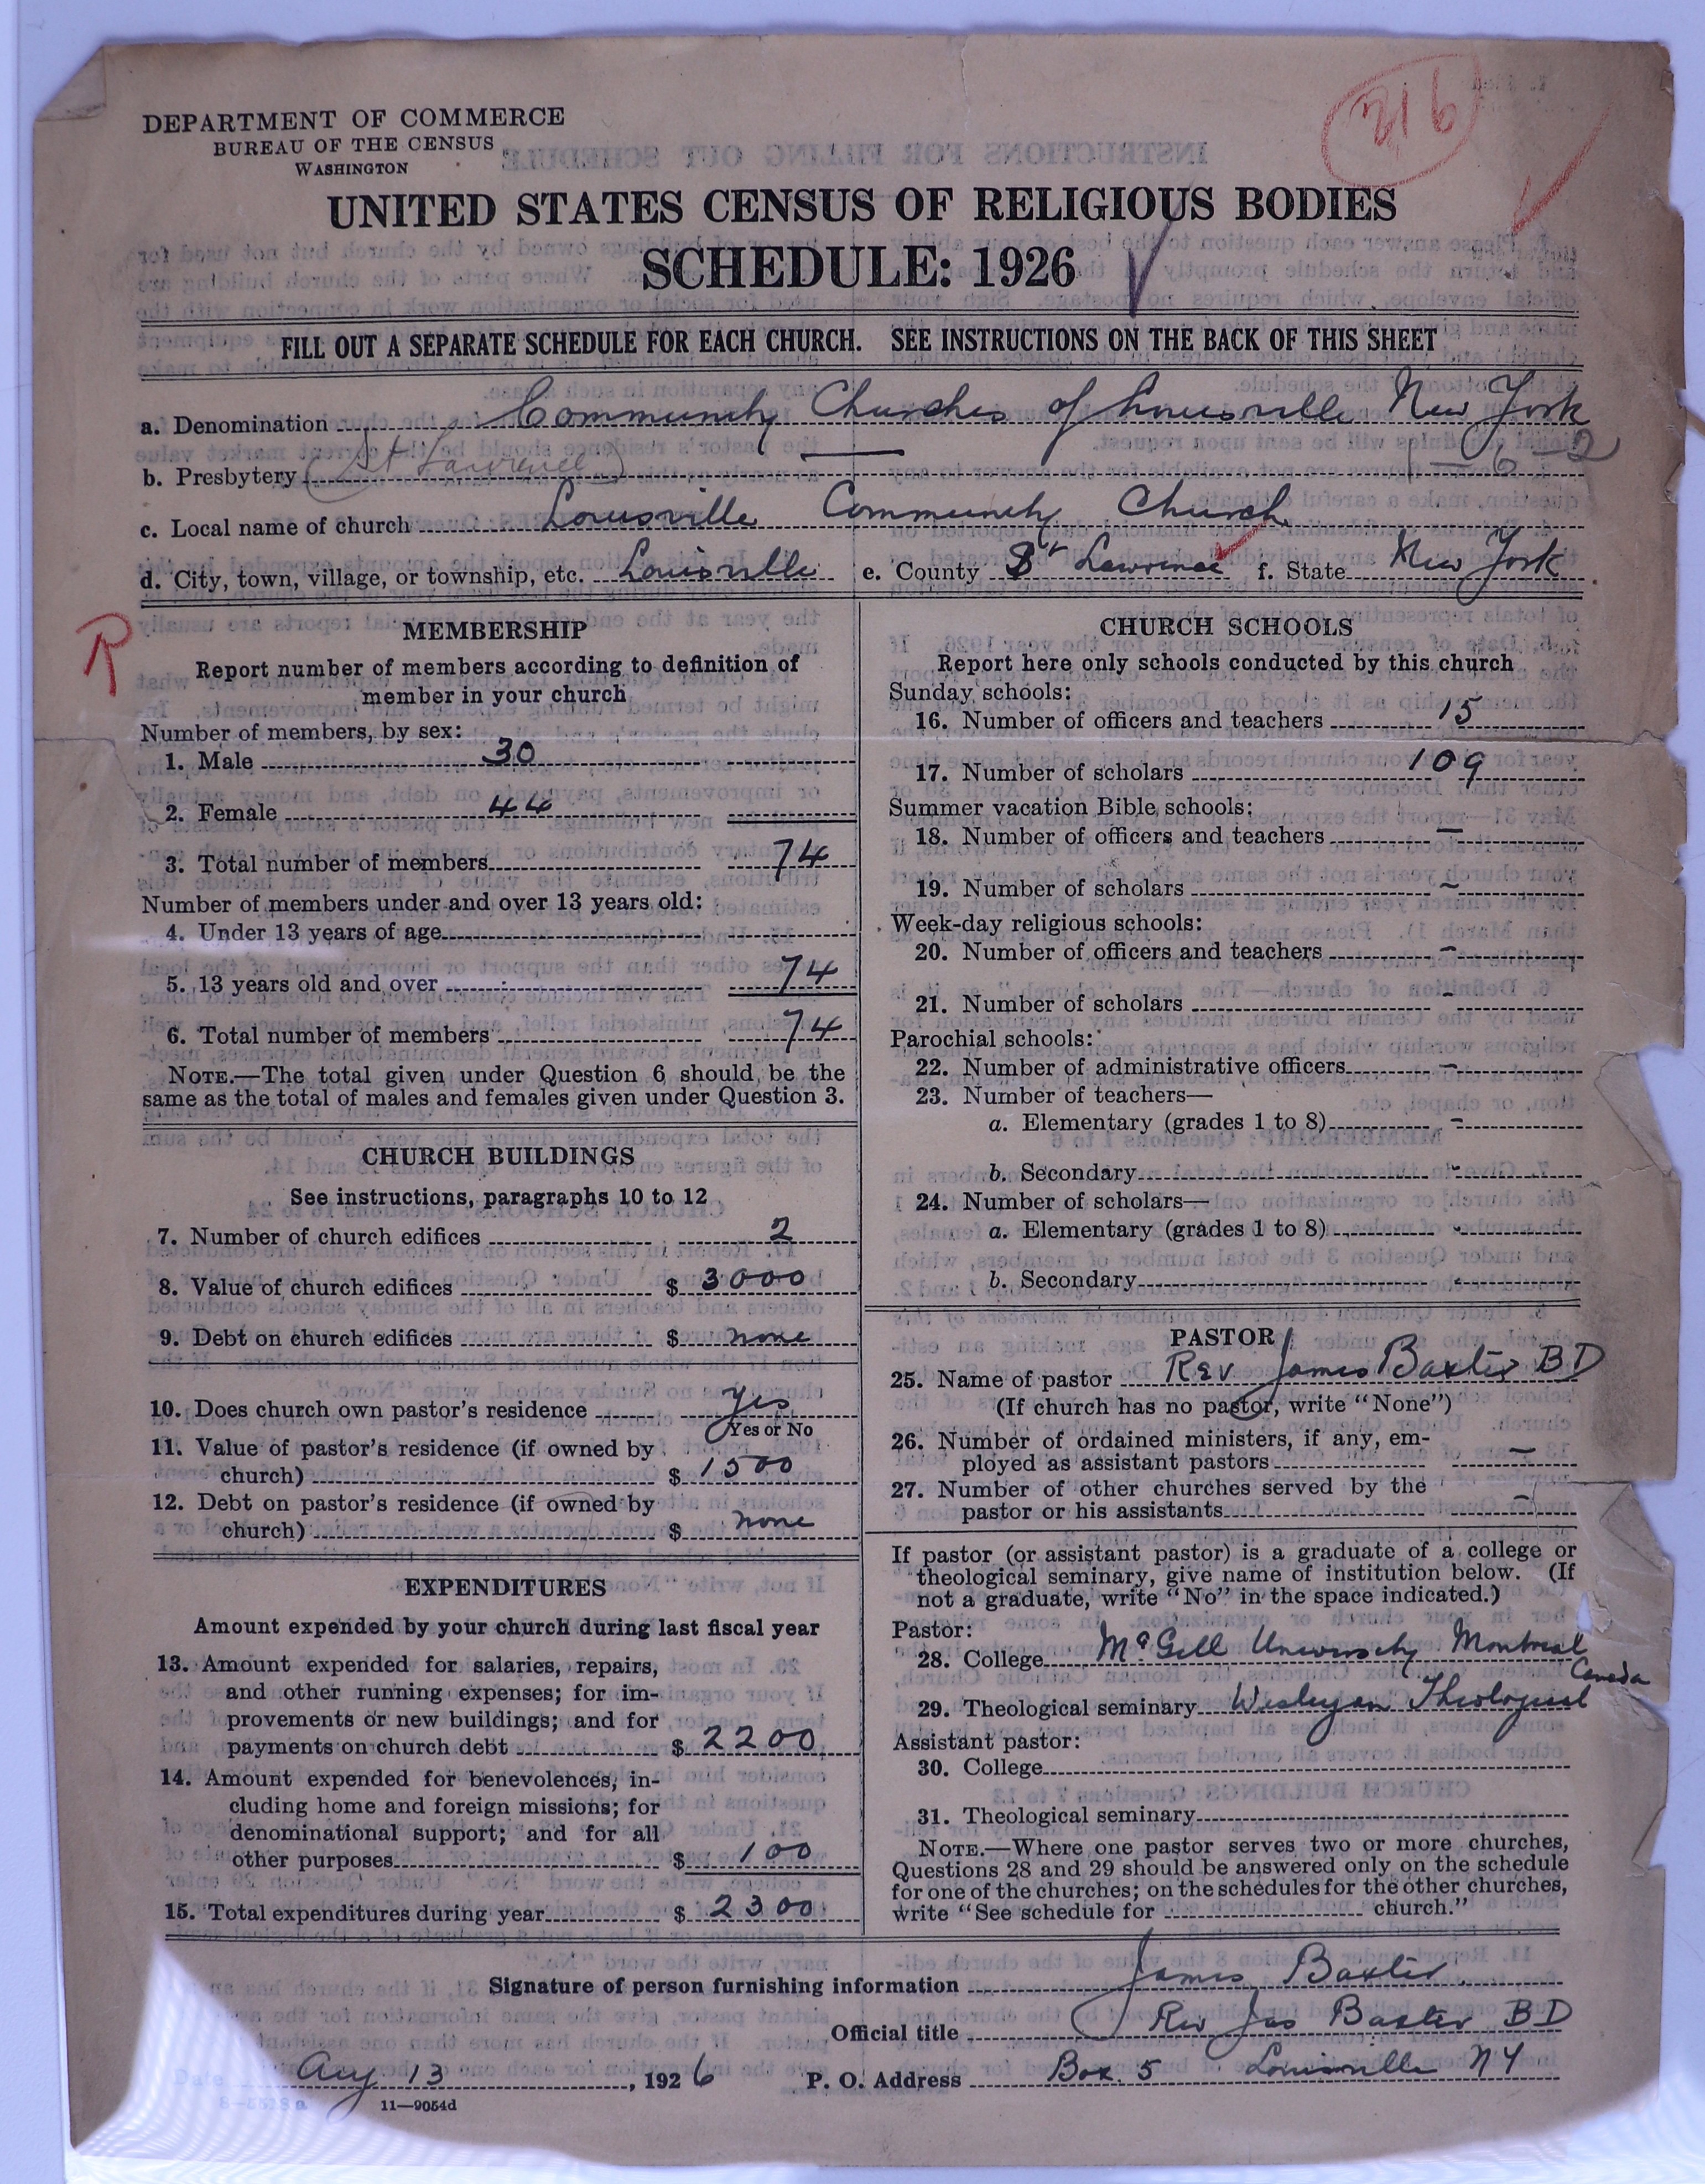 216
DEPARTMENT OF COMMERCE
BUREAU OF THE CENSUS
WASHINGTON
UNITED STATES CENSUS OF RELIGIOUS BODIES
SCHEDULE: 1926
FILL OUT A SEPARATE SCHEDULE FOR EACH CHURCH. SEE INSTRUCTIONS ON THE BACK OF THIS SHEET
a. Denomination Community Churches of Louisville New York
b. Presbytery (St Lawrence) — 1-6-2
c. Local name of church Louisville Community Church
d. City, town, village, or township, etc. Louisville e. County St Lawrence f. State New York
R
MEMBERSHIP
Report number of members according to definition of
member in your church
Number of members, by sex:
1. Male 30
2. Female 44
3. Total number of members 74
Number of members under and over 13 years old:
4. Under 13 years of age
5. 13 years old and over 74
6. Total number of members 74
NOTE.—The total given under Question 6 should be the
same as the total of males and females given under Question 3.
CHURCH BUILDINGS
See instructions, paragraphs 10 to 12
7. Number of church edifices 2
8. Value of church edifices $ 3000
9. Debt on church edifices $ none
10. Does church own pastor's residence yes
Yes or No
11. Value of pastor's residence (if owned by
church) $ 1500
12. Debt on pastor's residence (if owned by
church) $ none
EXPENDITURES
Amount expended by your church during last fiscal year
13. Amount expended for salaries, repairs,
and other running expenses; for im-
provements or new buildings; and for
payments on church debt $ 2200
14. Amount expended for benevolences, in-
cluding home and foreign missions; for
denominational support; and for all
other purposes $ 100
15. Total expenditures during year $ 2300
CHURCH SCHOOLS
Report here only schools conducted by this church
Sunday schools:
16. Number of officers and teachers 15
17. Number of scholars 109
Summer vacation Bible schools:
18. Number of officers and teachers —
19. Number of scholars -
Week-day religious schools:
20. Number of officers and teachers -
21. Number of scholars -
Parochial schools:
22. Number of administrative officers -
23. Number of teachers—
a. Elementary (grades 1 to 8) -
b. Secondary -
24. Number of scholars—
a. Elementary (grades 1 to 8) -
b. Secondary -
PASTOR
25. Name of pastor Rev James Baxter BD
(If church has no pastor, write "None")
26. Number of ordained ministers, if any, em-
ployed as assistant pastors —
27. Number of other churches served by the
pastor or his assistants —
If pastor (or assistant pastor) is a graduate of a college or
theological seminary, give name of institution below. (If
not a graduate, write "No" in the space indicated.)
Pastor:
28. College McGill University Montreal
Canada
29. Theological seminary Wesleyan Theological
Assistant pastor:
30. College
31. Theological seminary
NOTE.—Where one pastor serves two or more churches,
Questions 28 and 29 should be answered only on the schedule
for one of the churches; on the schedules for the other churches,
write "See schedule for church."
Signature of person furnishing information James Baxter
Official title Rev Jas Baxter BD
Date Aug 13, 1926 P. O. Address Box 5 Louisville NY
11—9054d